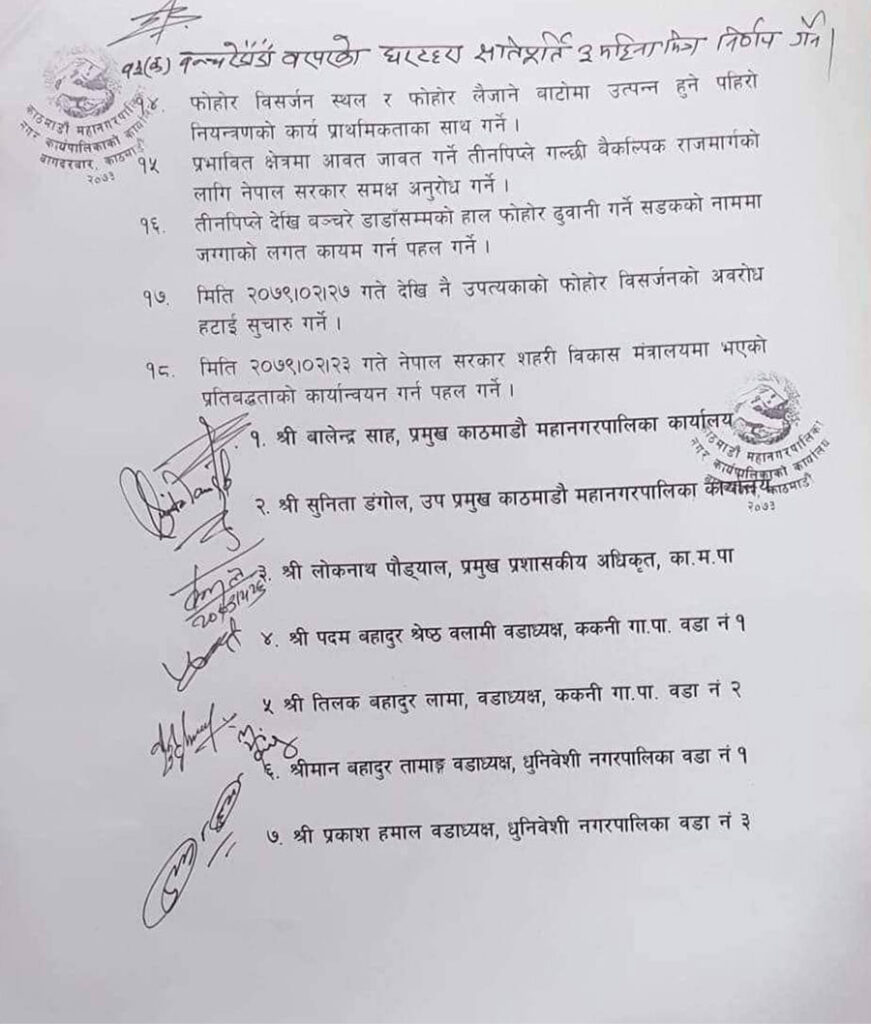 १३(क) बन्चरेडाँडा वरपरको घरटहरा क्षतिपूर्ति ३ महिना भित्र निर्णय गर्ने।
काठमाडौं महानगरपालिका
नगर कार्यपालिकाको कार्यालय
बागदरबार, काठमाडौं
२०७३
१४. फोहोर विसर्जन स्थल र फोहोर लैजाने वाटोमा उत्पन्न हुने पहिरो
नियन्त्रणको कार्य प्राथमिकताका साथ गर्ने।
१५ प्रभावित क्षेत्रमा आवत जावत गर्ने तीनपिप्ले गल्छी वैकल्पिक राजमार्गको
लागि नेपाल सरकार समक्ष अनुरोध गर्ने।
१६. तीनपिप्ले देखि वञ्चरे डाडाँसम्मको हाल फोहोर ढुवानी गर्ने सडकको नाममा
जग्गाको लगत कायम गर्न पहल गर्ने।
१७. मिति २०७९।०२।२७ गते देखि नै उपत्यकाको फोहोर विसर्जनको अवरोध
हटाई सुचारु गर्ने।
१८. मिति २०७९।०२।२३ गते नेपाल सरकार शहरी विकास मंत्रालयमा भएको
प्रतिबद्धताको कार्यान्वयन गर्न पहल गर्ने।
१. श्री बालेन्द्र साह, प्रमुख काठमाडौ महानगरपालिका कार्यालय
काठमाडौं महानगरपालिका
नगर कार्यपालिकाको कार्यालय
काठमाडौं
२०७३
२. श्री सुनिता डंगोल, उप प्रमुख काठमाडौ महानगरपालिका कार्यालय
३. श्री लोकनाथ पौड्याल, प्रमुख प्रशासकीय अधिकृत, का.म.पा
४. श्री पदम बहादुर श्रेष्ठ वलामी वडाध्यक्ष, ककनी गा.पा. वडा नं १
५ श्री तिलक बहादुर लामा, वडाध्यक्ष, ककनी गा.पा. वडा नं २
६. श्रीमान बहादुर तामाङ्ग वडाध्यक्ष, धुनिवेशी नगरपालिका वडा नं १
७. श्री प्रकाश हमाल वडाध्यक्ष, धुनिवेशी नगरपालिका वडा नं ३